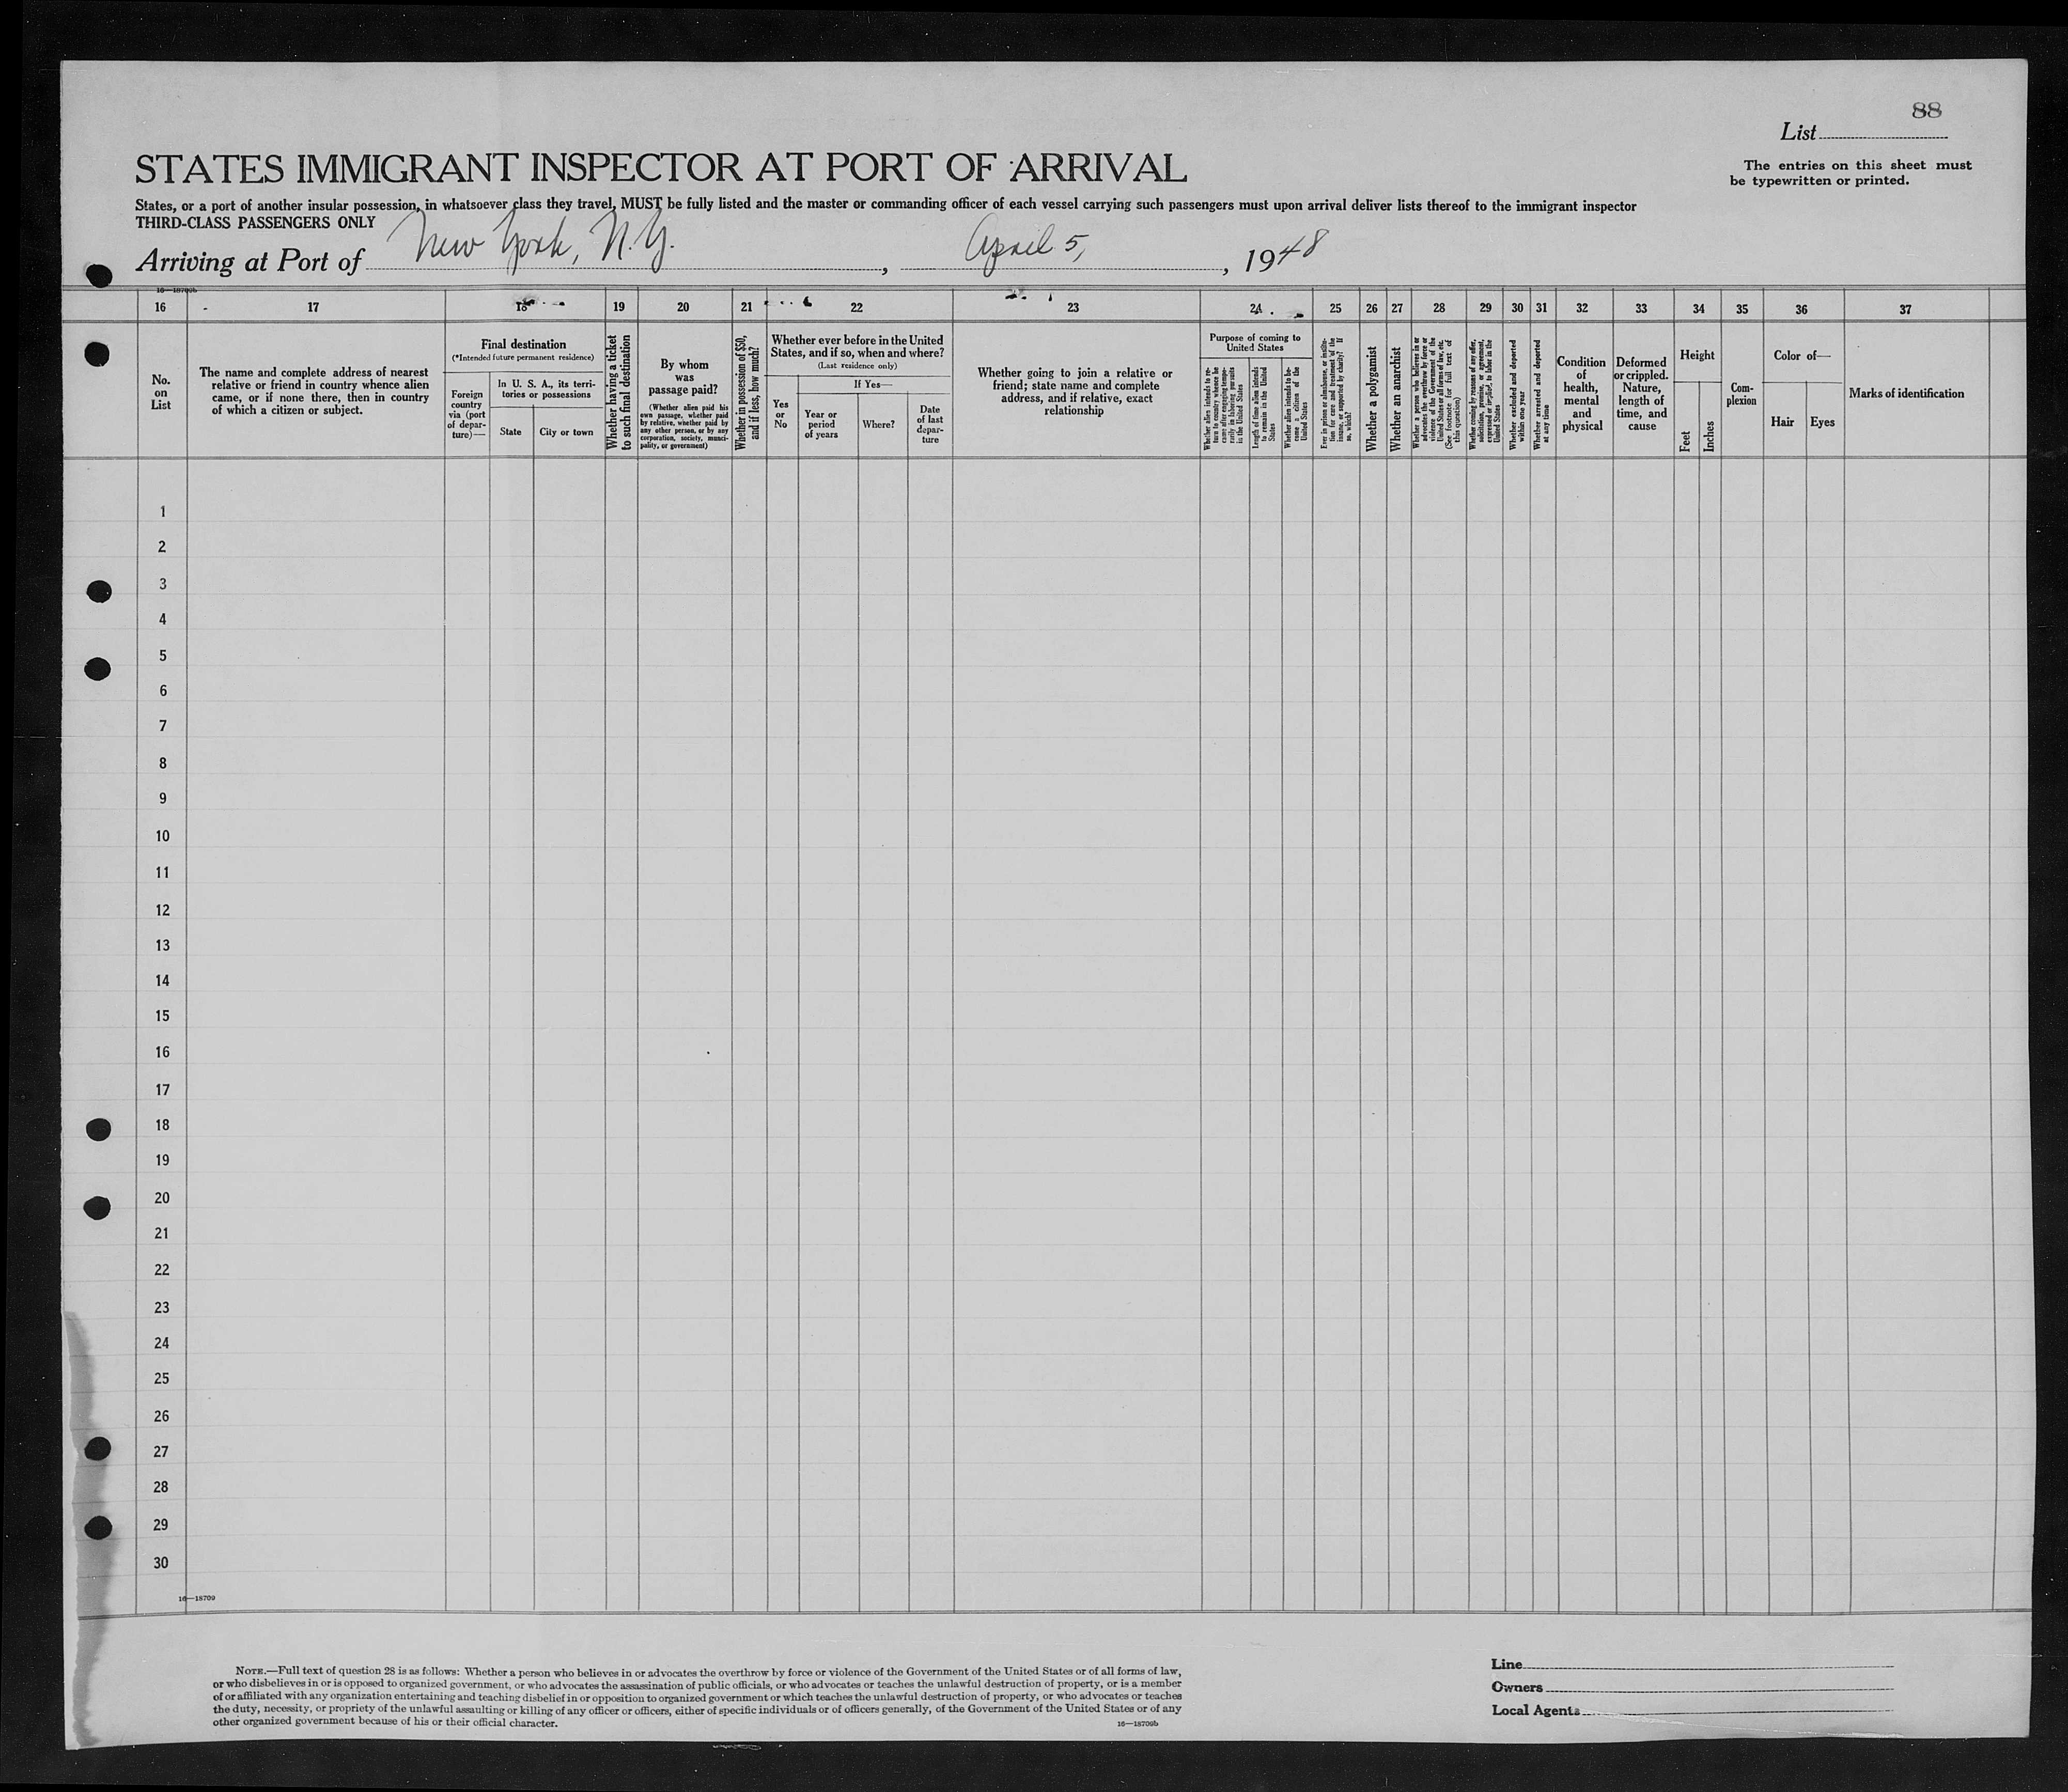 88
List
STATES IMMIGRANT INSPECTOR AT PORT OF ARRIVAL
The entries on this sheet must
be typewritten or printed.
States, or a port of another insular possession, in whatsoever class they travel, MUST be fully listed and the master or commanding officer of each vessel carrying such passengers must upon arrival deliver lists thereof to the immigrant inspector
THIRD-CLASS PASSENGERS ONLY
Arriving at Port of New York, N.Y., April 5, 1948
16—18709b
16 17 18 19 20 21 22 23 24 25 26 27 28 29 30 31 32 33 34 35 36 37
No.
on
List
The name and complete address of nearest
relative or friend in country whence alien
came, or if none there, then in country
of which a citizen or subject.
Final destination
(*Intended future permanent residence)
Foreign
country
via (port
of depar-
ture)—
In U. S. A., its terri-
tories or possessions
State
City or town
Whether having a ticket
to such final destination
By whom
was
passage paid?
(Whether alien paid his
own passage, whether paid
by relative, whether paid by
any other person, or by any
corporation, society, munici-
pality, or government)
Whether in possession of $50,
and if less, how much?
Whether ever before in the United
States, and if so, when and where?
(Last residence only)
Yes
or
No
If Yes—
Year or
period
of years
Where?
Date
of last
depar-
ture
Whether going to join a relative or
friend; state name and complete
address, and if relative, exact
relationship
Purpose of coming to
United States
Whether alien intends to re-
turn to country whence he
came after engaging tempo-
rarily in laboring pursuits
in the United States
Length of time alien intends
to remain in the United
States
Whether alien intends to be-
come a citizen of the
United States
Ever in prison or almshouse, or institu-
tion for care and treatment of the
insane, or supported by charity? If
so, which?
Whether a polygamist
Whether an anarchist
Whether a person who believes in or
advocates the overthrow by force or
violence of the Government of the
United States or all forms of law, etc.
(See footnote for full text of
this question)
Whether coming by reasons of any offer,
solicitation, promise, or agreement,
expressed or implied, to labor in the
United States
Whether excluded and deported
within one year
Whether arrested and deported
at any time
Condition
of
health,
mental
and
physical
Deformed
or crippled.
Nature,
length of
time, and
cause
Height
Feet
Inches
Com-
plexion
Color of—
Hair
Eyes
Marks of identification
1
2
3
4
5
6
7
8
9
10
11
12
13
14
15
16
17
18
19
20
21
22
23
24
25
26
27
28
29
30
16—18709
NOTE.—Full text of question 28 is as follows: Whether a person who believes in or advocates the overthrow by force or violence of the Government of the United States or of all forms of law,
or who disbelieves in or is opposed to organized government, or who advocates the assassination of public officials, or who advocates or teaches the unlawful destruction of property, or is a member
of or affiliated with any organization entertaining and teaching disbelief in or opposition to organized government or which teaches the unlawful destruction of property, or who advocates or teaches
the duty, necessity, or propriety of the unlawful assaulting or killing of any officer or officers, either of specific individuals or of officers generally, of the Government of the United States or of any
other organized government because of his or their official character.
16—18709b
Line
Owners
Local Agents